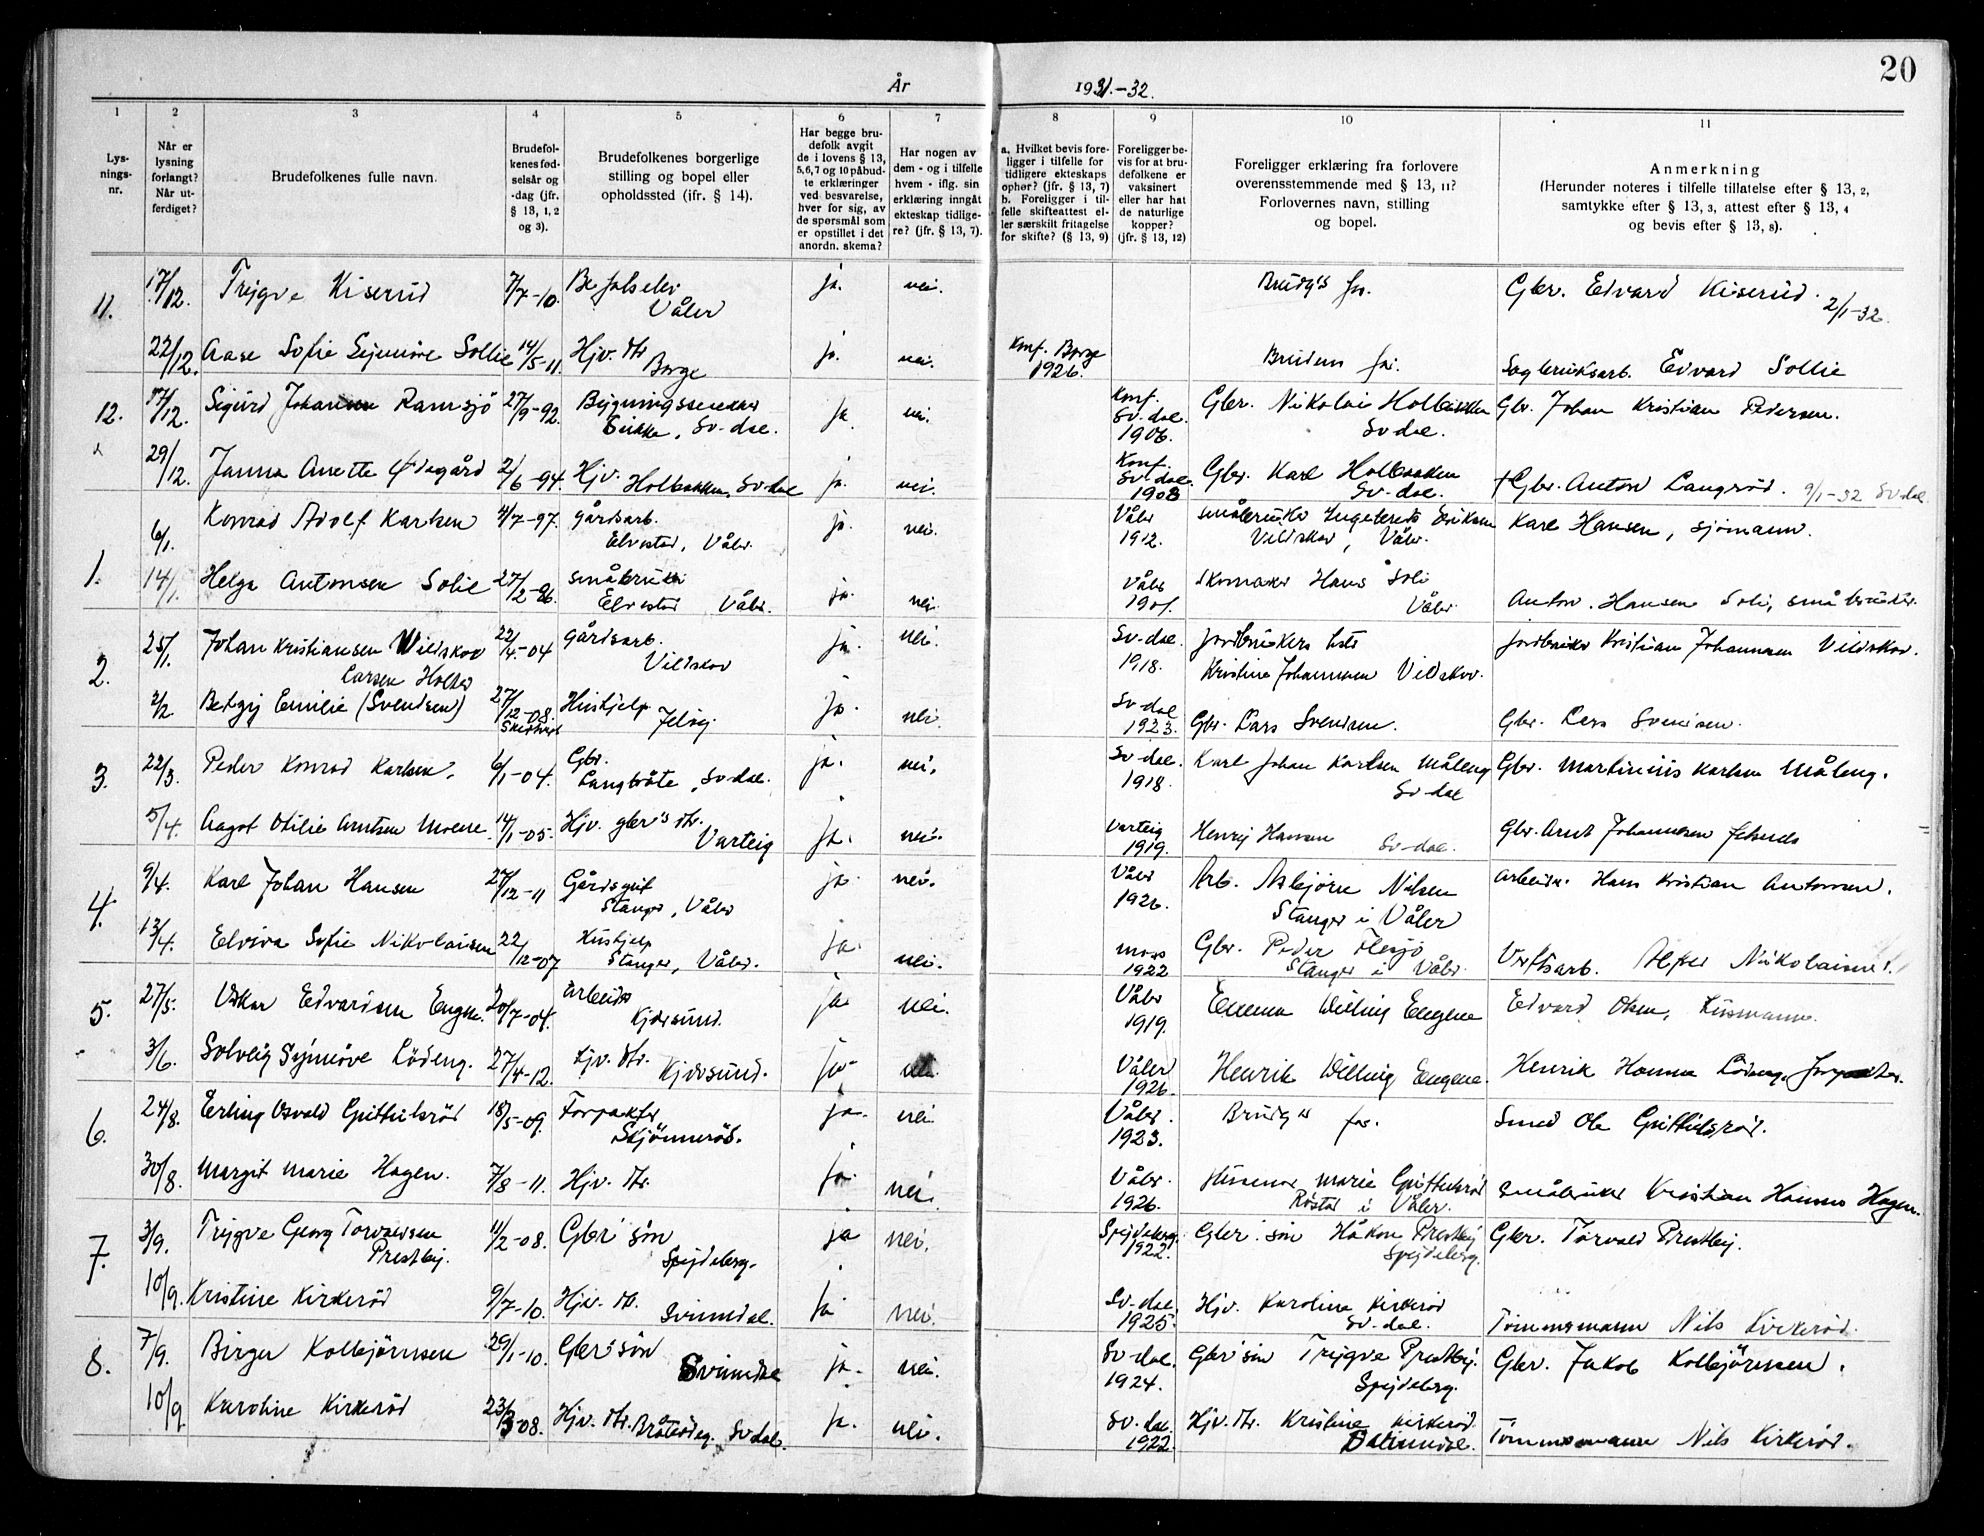 20
År 1931.-32.
1 2 3 4 5 6 7 8 9 10 11
Lys-
nings-
nr.
Når er
lysning
forlangt?
Når ut-
ferdiget?
Brudefolkenes fulle navn.
Brudefol-
kenes fød-
selsår og
-dag (jfr.
§ 13, 1, 2
og 3).
Brudefolkenes borgerlige
stilling og bopel eller
opholdssted (ifr. § 14).
Har begge bru-
defolk avgit
de i lovens § 13,
5, 6, 7 og 10 påbud-
te erklæringer
ved besvarelse,
hver for sig, av
de spørsmål som
er opstillet i det
anordn. skema?
Har nogen av
dem - og i tilfelle
hvem - iflg. sin
erklæring inngåt
ekteskap tidlige-
re? (jfr. § 13, 7).
a. Hvilket bevis fore-
ligger i tilfelle for
tidligere ekteskaps
ophør? (jfr. § 13, 7)
b. Foreligger i til-
felle skifteattest el-
ler særskilt fritagelse
for skifte? (§ 13, 9)
Foreligger be-
vis for at bru-
defolkene er
vaksinert
eller har hat
de naturlige
kopper?
(jfr. § 13, 12)
Foreligger erklæring fra forlovere
overensstemmende med § 13, 11?
Forlovernes navn, stilling
og bopel.
Anmerkning
(Herunder noteres i tilfelle tillatelse efter § 13, 2,
samtykke efter § 13, 3, attest efter § 13, 4
og bevis efter § 13, 8).
11. 17/12. Trygve Kiserud 7/7-10. Befalselev Våler ja. nei. Brudg's far. Gbr. Edvard Kiserud. 2/1-32.
22/12. Aase Sofie Synnöve Sollie 14/5-11. Hjv. dtr. Borge ja. nei. Konf. Borge 1926. Brudens far. Sagbruksarb. Edvard Sollie
12. 17/12. Sigurd Johansen Ramsjö 27/9-92. Bygningssnekker, Sv-dal. ja. nei. Konf. Sv-dal. 1906. Gbr. Nikolai Holbakken Sv-dal. Gbr. Johan Kristian Pedersen.
29/12. Janna Anette Ødegård 2/6-94. Hjv. Holbakken, Sv-dal ja. nei. Konf. Sv-dal. 1908 Gbr. Karl Holbakken Sv-dal. Gbr. Anton Langröd. 9/1-32 Sv-dal.
1. 6/1. Konrad Adolf Karlsen 4/7-97. gårdsarb. Elvestad, Våler. ja. nei. Våler 1912. Vildskov, Våler. Karl Hansen, sjømann.
14/1. Helga Antonsen Solie 27/2-86. småbruker Elvestad Våler. ja. nei. Våler 1901. skomaker Hans Soli Våler Anton Hansen Soli, småbruker.
2. 25/1. Johan Kristiansen Vildskov 22/4-04 gårdsarb. Vildskov ja. nei. Sv-dal. 1918. Jordbrukers hstr. Kristine Johannesen Vildskov. Jordbruker Kristian Johannesen Vildskov.
Larsen Holter
2/2 Betzy Emilie (Svendsen) 27/12-08. Skiptvet Hushjelp Jeløy ja. nei. Sv-dal 1923. Gbr. Lars Svendsen. Gbr. Lars Svendsen.
3. 22/3. Peder Konrad Karlsen. 6/1-04. Gbr. Langbråte, Sv-dal. ja. nei. Sv-dal. 1918. Karl Johan Karlsen Måleng Sv-dal Gbr. Martinius Karlsen Måleng.
5/4. Aagot Otilie Arntsen Moene. 14/1-05. Hjv. gbr's dtr. Varteig ja. nei. Varteig 1919. Henry Hansen Sv-dal. Gbr. Arnt Johannesen
4. 9/4. Karl Johan Hansen 27/12-11 Gårdsgut Stanger, Våler ja. nei. Våler 1926. Arb. Asbjørn Nilsen Stanger i Våler Arbeider Hans Kristian Antonsen.
13/4. Elvira Sofie Nikolaisen 22/12-07 Hushjelp Stanger, Våler. ja. nei. Moss 1922 Gbr. Peder Flesjö Stanger i Våler Verftsarb. Alfred Nikolaisen
5. 27/5. Oskar Edvardsen Engene. 20/7-04. Arbeider Kjærsund. ja. nei. Våler 1919. Emma Willing Engene Edvard Olsen, Husmann.
3/6. Solveig Synnöve Lödeng. 27/4-12. Hjv. dtr. Kjærsund. ja. nei. Våler 1926. Henrik Willing Engene. Henrik Hansen Lödeng, Forpakter.
6. 24/8. Erling Osvald Guttulsröd 18/5-09. Forpakter Skjönneröd. ja. nei. Våler. 1923. Brudg's far. Smed Ole Guttulsröd.
30/8. Margit Marie Hagen. 7/8-11. Hjv. dtr. ja. nei. Våler. 1926. Marie Guttulsröd Röstad i Våler. Småbruker Kristian Hansen Hagen.
7. 3/9. Trygve Georg Torvaldsen Prestby. 11/2-08. Gbr's sön Spydeberg. ja nei. Spydeberg. 1922. Gbr. sön Håkon Prestby Spydeberg. Gbr. Torvald Prestby.
10/9. Kristine Kirkeröd 9/7-10. Hjv. dtr. Svinndal. ja nei. Sv-dal. 1925. Hjv. Karoline Kirkeröd Sv-dal. Tömmermann Nils Kirkeröd.
8. 7/9. Birger Kolbjörnsen 29/1-10. Gbr's sön Svinndal ja. nei. Sv-dal. 1924. Gbr's sön Trygve Prestby. Spydeberg. Gbr. Jakob Kolbjörnsen.
10/9 Karoline Kirkeröd 23/3-08. Hjv. dtr. Bråtedeg. Sv-dal. ja. nei. Sv-dal. 1922. Hjv. dtr. Kristine Kirkeröd Svinndal. Tömmermann Nils Kirkeröd.